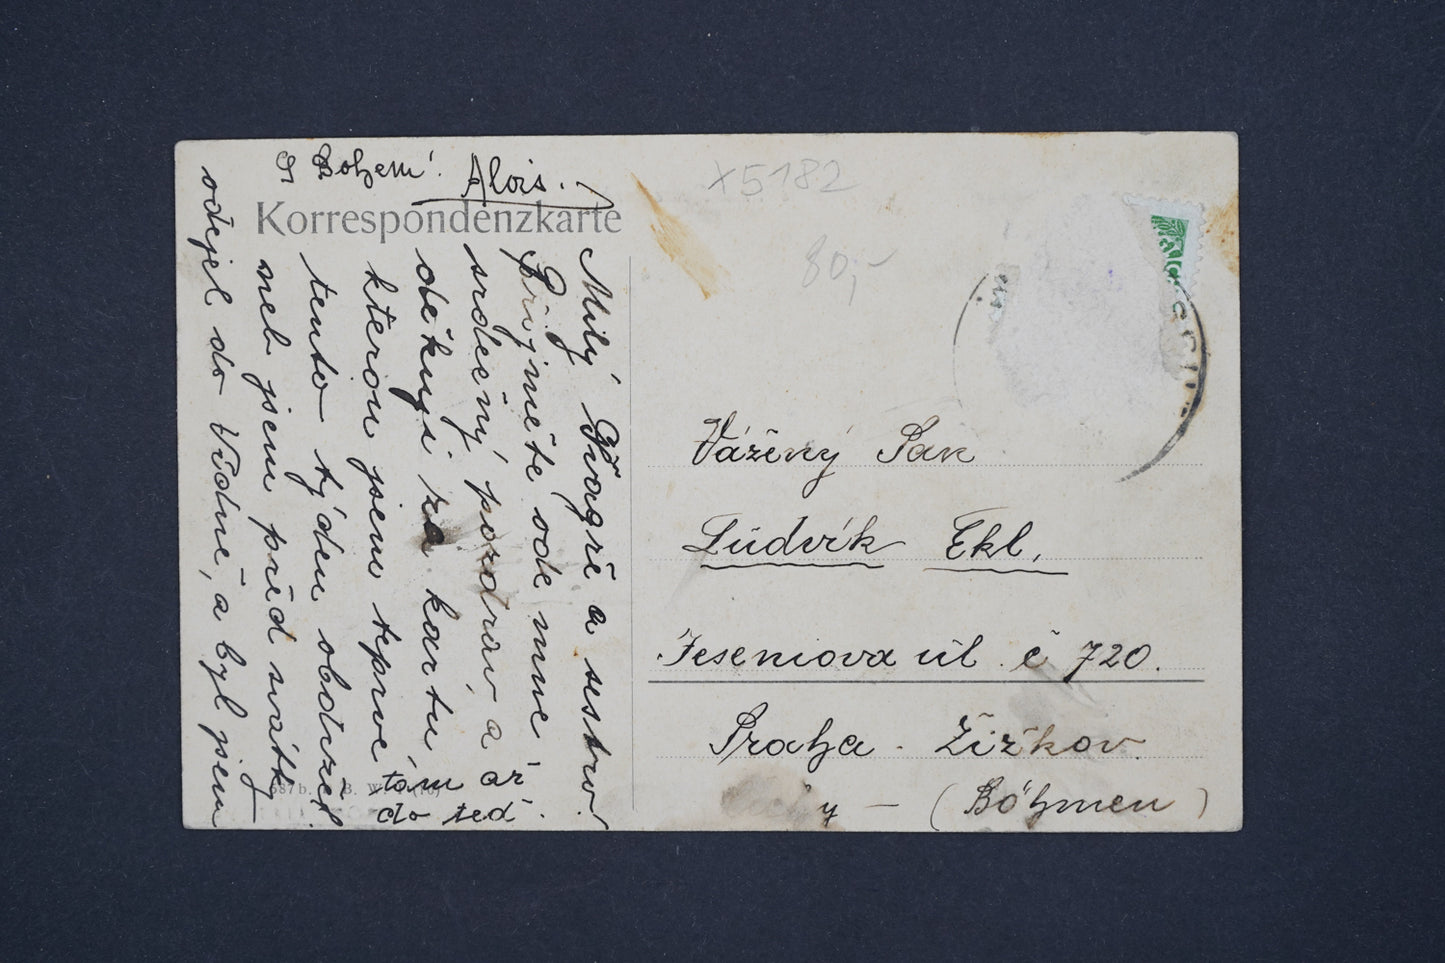 S Bohem! Alois.
Korrespondenzkarte
X5182
80,-
Milý Švagře a sestro.
Přijměte ode mne
srdečný pozdrav a
děkuji za kartu
kterou jsem teprve
tento týden obdržel
neb jsem před svátky
odejel do Vídně, a byl jsem
tám až
do teď.
Vážený Pan
Lúdvík Ekl,
Jeseniova úl. č 720.
Praha - Žižkov
(Böhmen)